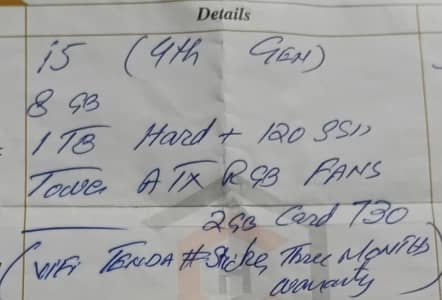 Details
i5 (4th Gen)
8 GB
1 TB Hard + 120 SSD
Tower ATX RGB FANS
2GB Card 730
(WiFi TENDA # Three MONTHS
warranty)